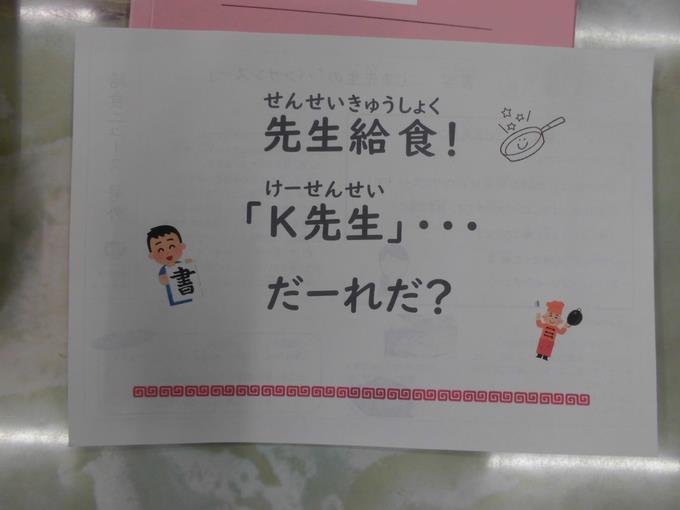 せんせいきゅうしょく
先生給食!
けーせんせい
「K先生」・・・
だーれだ?
書